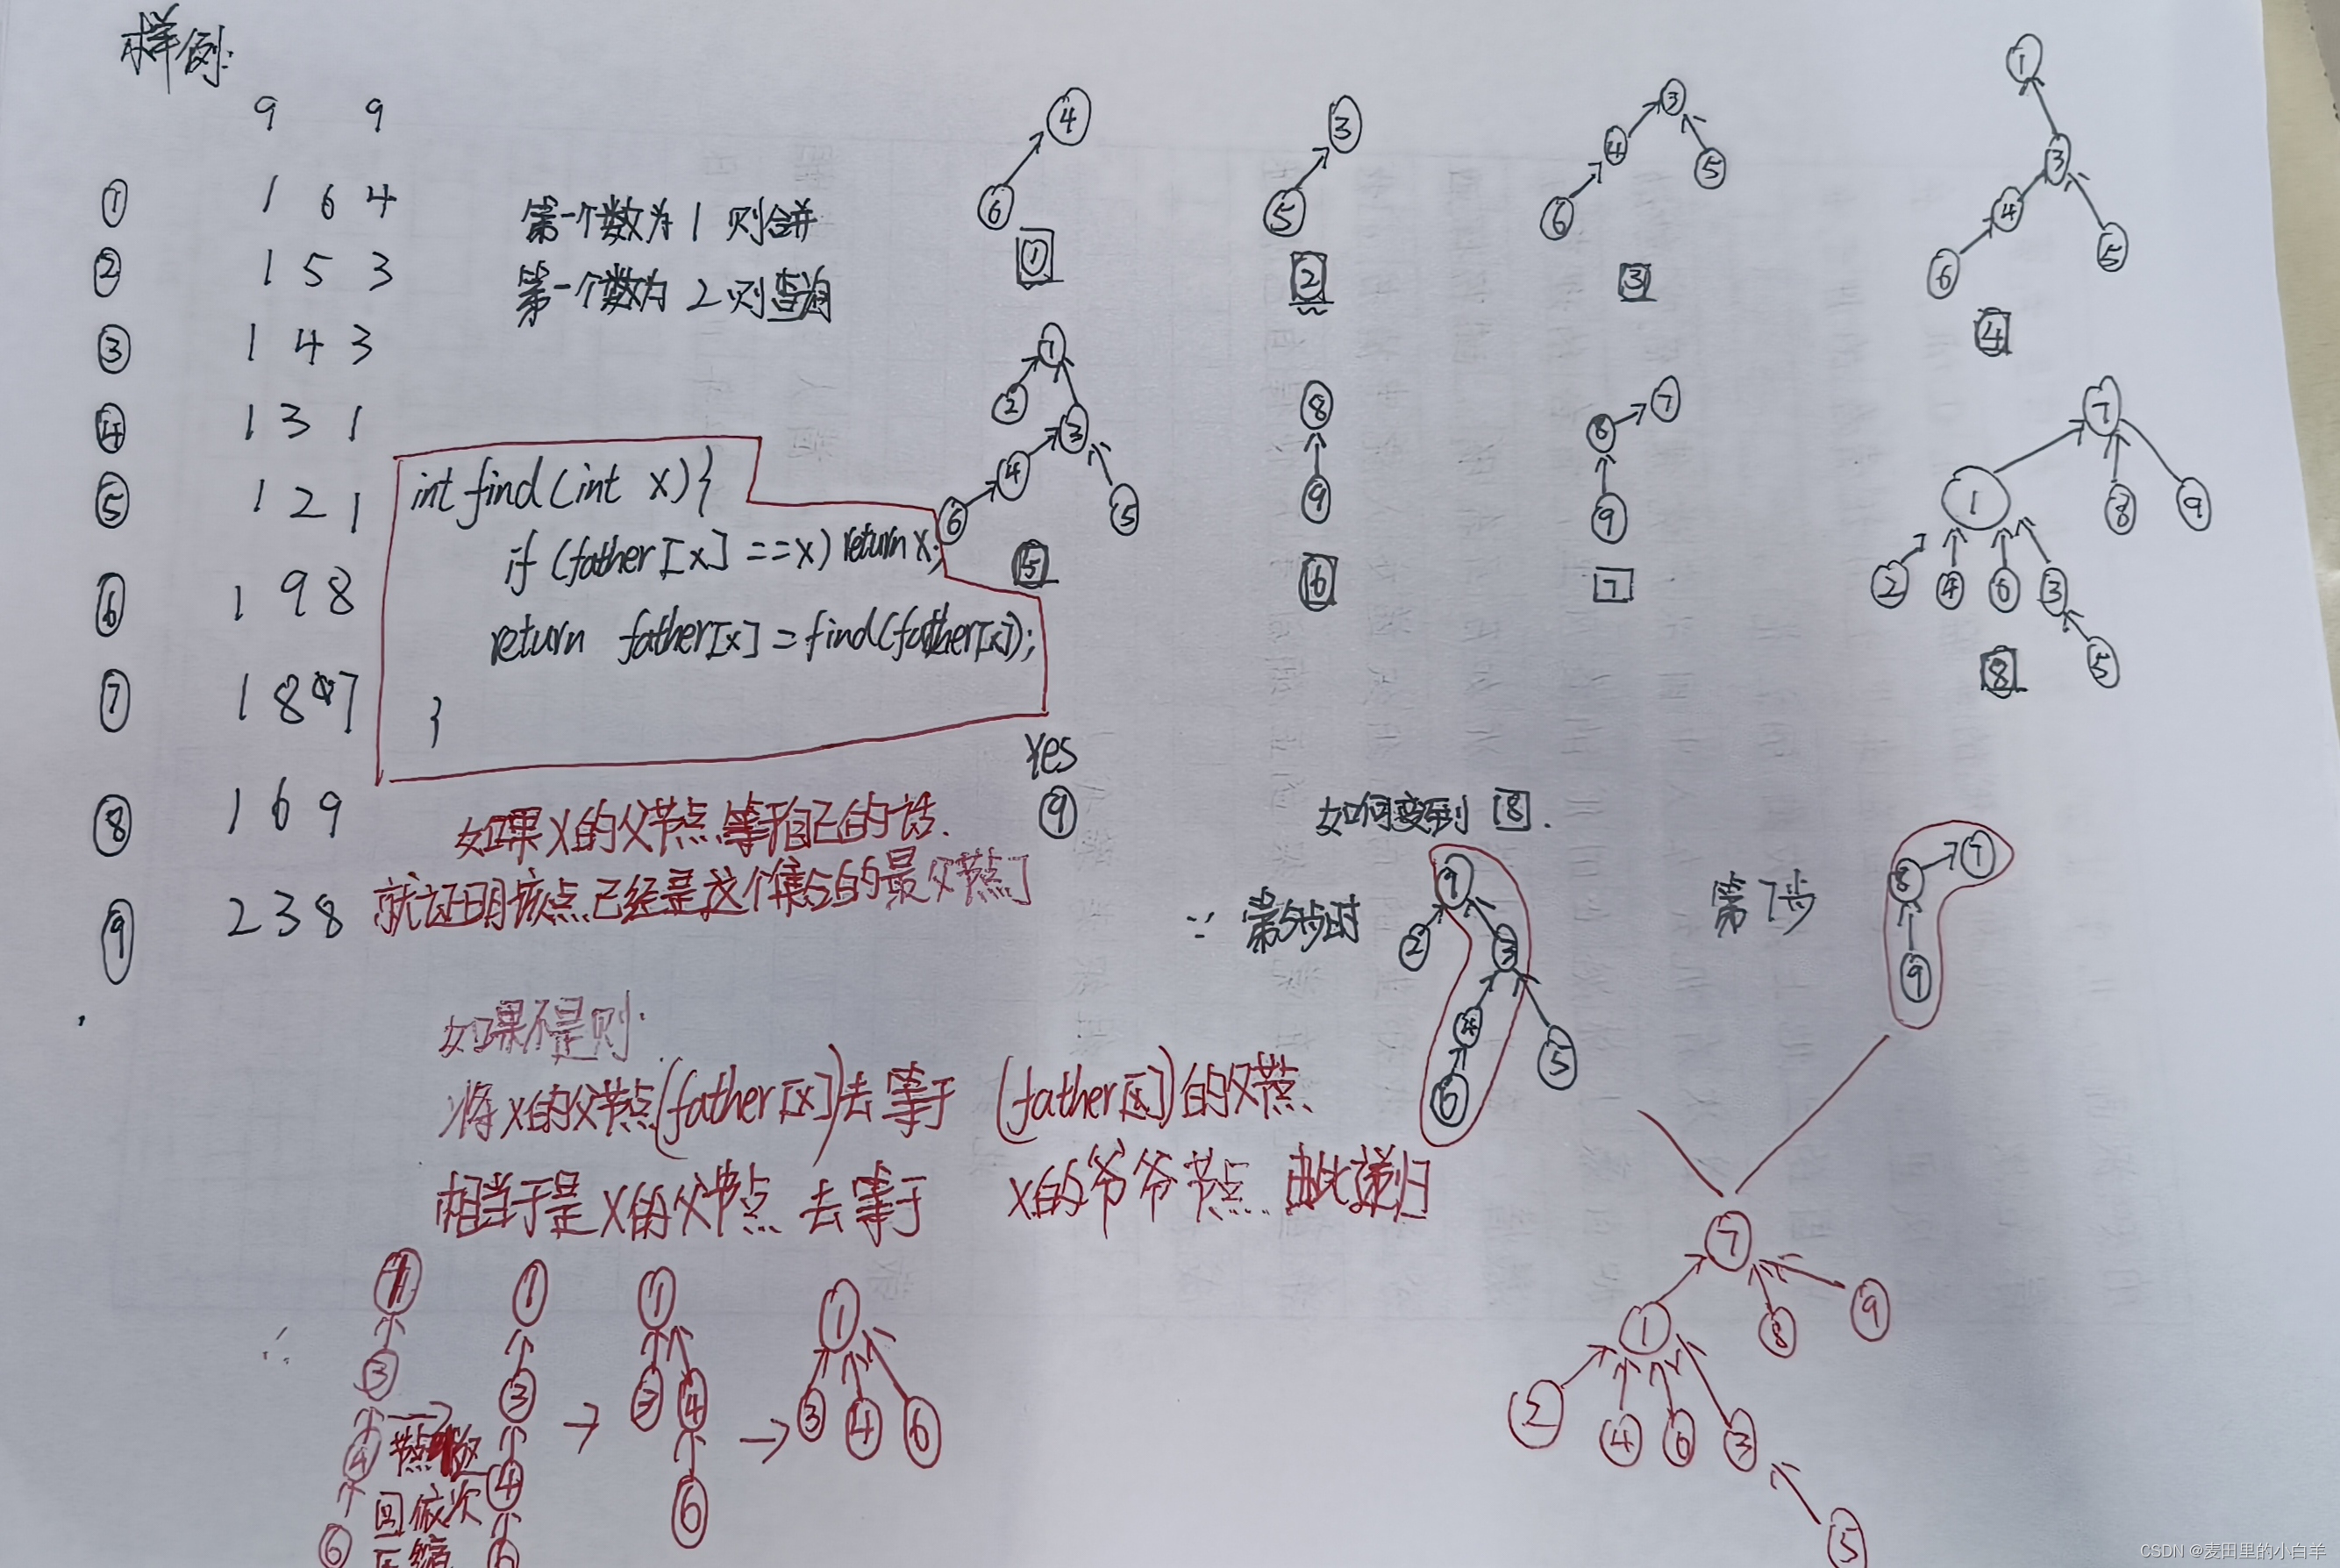 样例:
9 9
① 1 6 4
② 1 5 3
③ 1 4 3
④ 1 3 1
⑤ 1 2 1
⑥ 1 9 8
⑦ 1 8 7
⑧ 1 6 9
⑨ 2 3 8
第一个数为 1 则合并
第一个数为 2 则查询
int find(int x){
if (father[x] ==x) return x;
return father[x] = find(father[x]);
}
4
6
①
3
5
②
3
4
5
6
③
1
3
4
5
6
④
7
2
3
4
6
5
⑤
8
9
⑥
7
8
9
7
7
1
8
9
2
4
6
3
5
⑧
Yes
⑨
如果X的父节点等于自己的话.
就证明该点已经是这个集合的最父节点了
如果不是则:
将X的父节点(father[x])去等于 (father[x])的父节点
相当于是X的父节点 去等于 X的爷爷节点 由此递归
如何变到 8.
∵ 第5步时
2
3
4
6
5
第7步
7
8
9
7
1
8
9
2
4
6
3
5
∴
3
4
6
回依次
压缩
1
3
4
6
→
1
3
4
6
→
1
3
4
6
CSDN @麦田里的小白羊